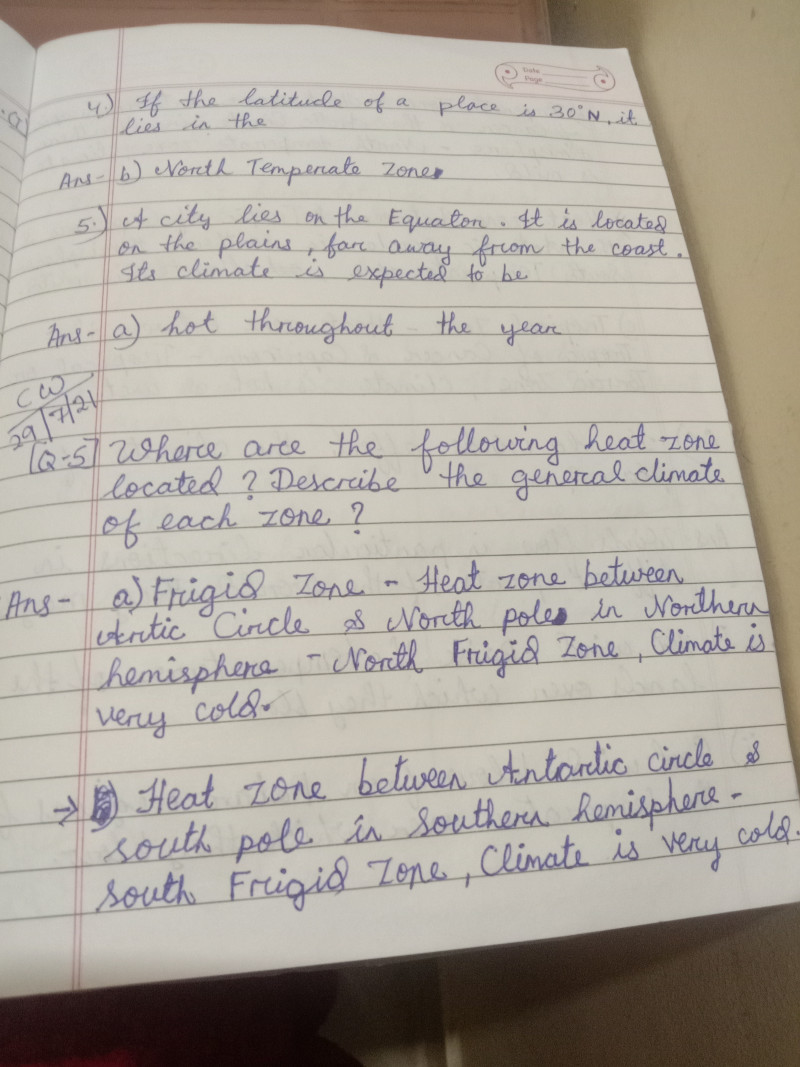 Date
Page
4) If the latitude of a place is 30°N, it
lies in the
Ans- b) North Temperate Zone.
5.) A city lies on the Equator. It is located
on the plains, far away from the coast.
Its climate is expected to be
Ans- a) hot throughout the year
CW
29/7/21
[Q-5] Where are the following heat zone
located? Describe the general climate
of each zone?
Ans- a) Frigid Zone - Heat zone between
Arctic Circle & North pole in Northern
hemisphere - North Frigid Zone, Climate is
very cold.
→ Heat zone between Antarctic circle &
south pole in southern hemisphere -
south Frigid Zone, Climate is very cold.